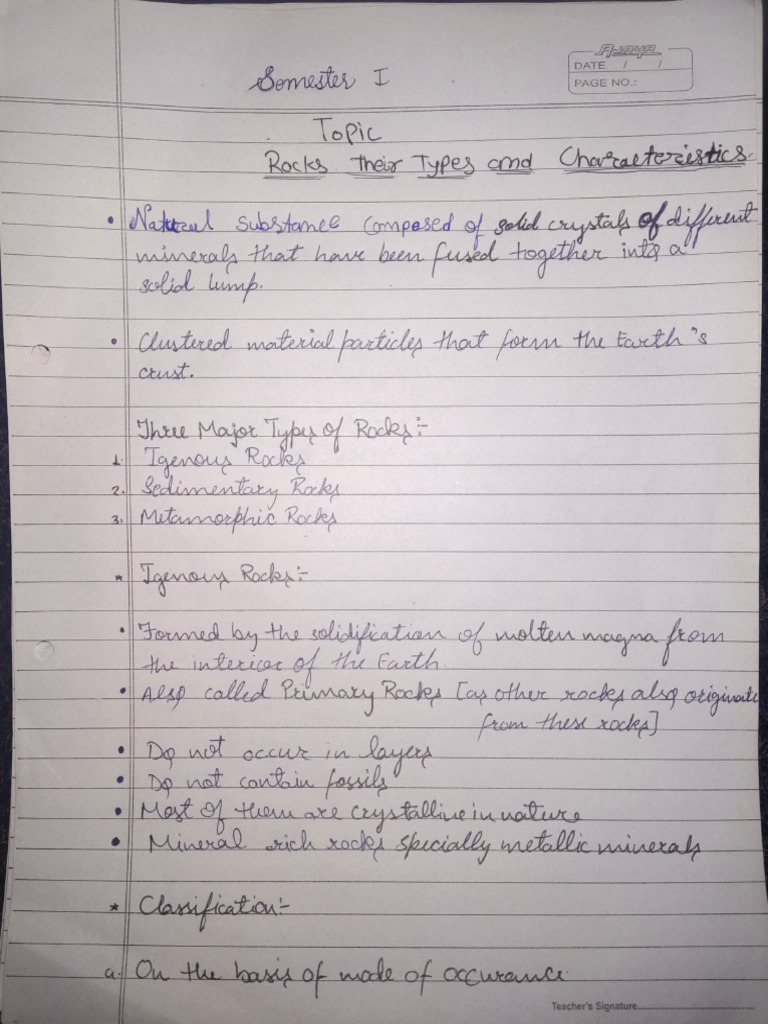 Semester I
Avaya
DATE / /
PAGE NO.:
Topic
Rocks Their Types and Characteristics.
• Natural substance composed of solid crystals of different
minerals that have been fused together into a
solid lump.
• Clustered material particles that form the Earth"s
crust.
Three Major Types of Rocks:-
1. Igenous Rocks
2. Sedimentary Rocks
3. Metamorphic Rocks
* Igenous Rocks:-
• Formed by the solidification of molten magna from
the interior of the Earth.
• Also called Primary Rocks [as other rocks also originate
from these rocks]
• Do not occur in layers
• Do not contain fossils
• Most of them are crystalline in nature
• Mineral rich rocks specially metallic minerals
* Classification:-
a. On the basis of mode of occurance.
Teacher's Signature